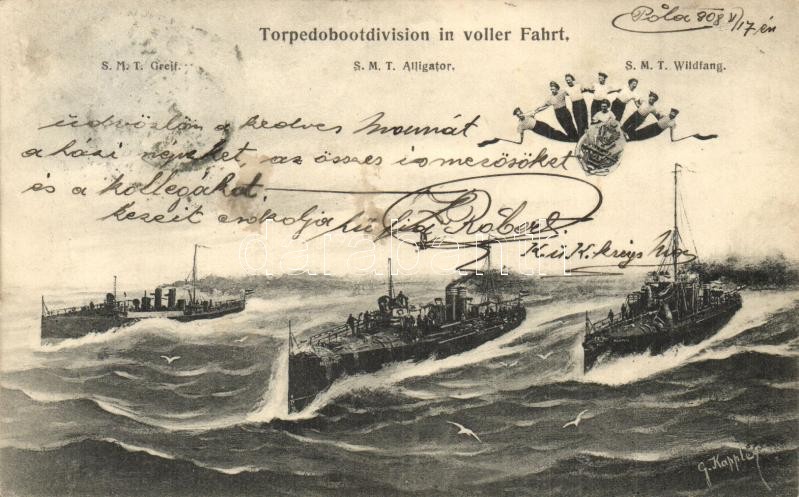 Póla 908 VI/17-én
Torpedobootdivision in voller Fahrt.
S. M. T. Greif. S. M. T. Alligator. S. M. T. Wildfang.
üdvözlöm a kedves Mamát
a házi népeket, az összes ismerősöket
és a kollegákat,
kezeit csókolja hű fia Róbert
K. u. K.
darabanth
G. Kappler